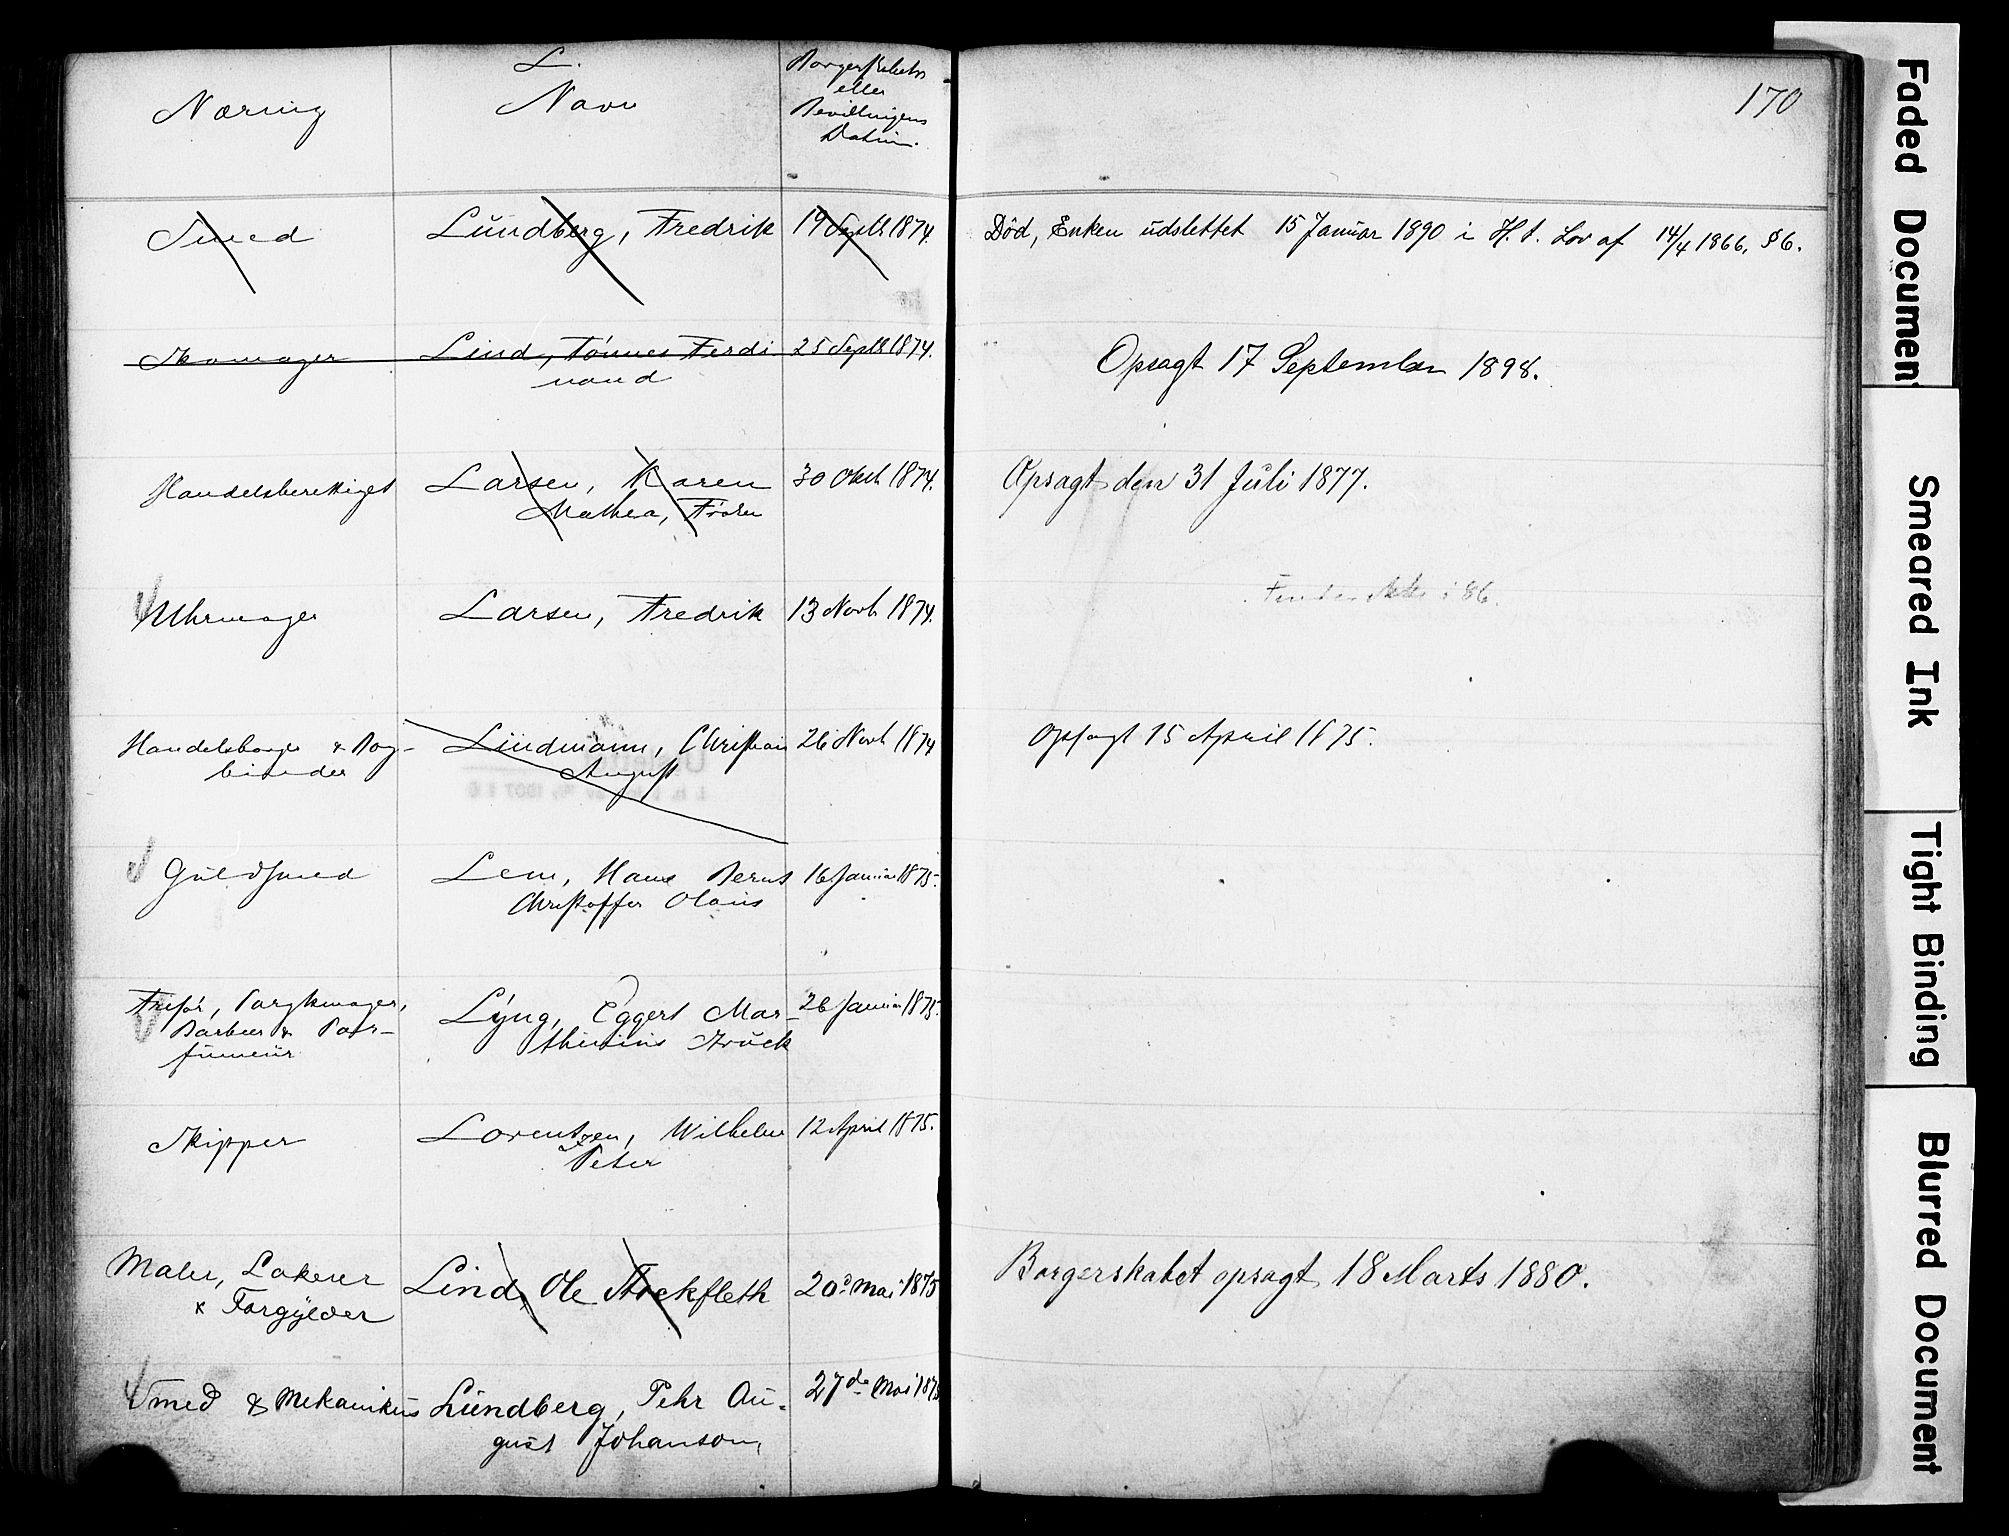 L.
Næring
Navn
Borgerskabets
eller
Bevillingens
Datum.
170
Smed Lundberg, Fredrik 19 Septb 1874. Död, Enken udslettet 15 Januar 1890 i H. t. Lov af 14/4 1866, § 6.
Skomager Lind, Tönnes Ferdi 25 Septb 1874. Opsagt 17 September 1898.
nand
Handelsberettiget Larsen, Karen 30 Oktb 1874. Opsagt den 31 Juli 1877.
Mathea, Fröken
Uhrmager Larsen, Fredrik 13 Novb 1874. Findes ikke i 86.
Handelsborger & Bog- Lindmann, Christian 26 Novb 1874 Opsagt 15 April 1875.
binder August
Guldsmed Lem, Hans Bernt 16 Januar 1875.
Christoffer Olaus
Frisör, Parykmager, Lyng, Eggert Mar- 26 Januar 1875.
Barbeer & Par- thinius Struck
fumeur
Skipper Lorentzen, Wilhelm 12 April 1875.
Peter
Maler, Lakerer Lind, Ole Stockfleth 20de Mai 1875 Borgerskabet opsagt 18 Marts 1880.
& Forgylder
Smed & Mekanikus Lundberg, Pehr Au- 27de Mai 1875
gust Johanson,
Faded Document
Smeared Ink
Tight Binding
Blurred Document